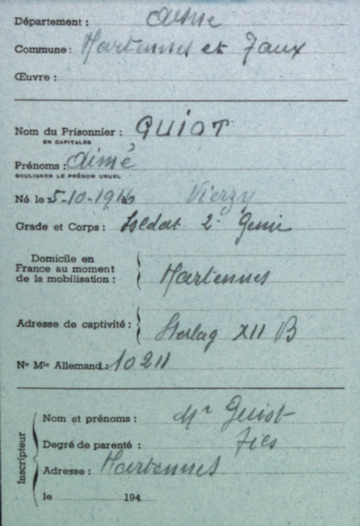 Département : Aisne
Commune : Hartennes et Taux
Œuvre :
Nom du Prisonnier : GUIOT
EN CAPITALES
Prénoms : Aimé
SOULIGNER LE PRÉNOM USUEL
Né le 5-10-1916 Vierzy
Grade et Corps : Soldat 2e Génie
Domicile en
France au moment
de la mobilisation : Hartennes
Adresse de captivité : Stalag XII B
No Mle Allemand : 10211
Inscripteur
Nom et prénoms : Mr Guiot
Degré de parenté :
Adresse : Hartennes
le 194